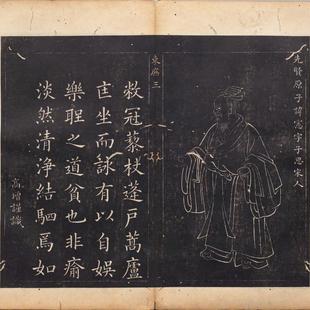 先賢原子諱憲字子思宋人
東廡三
敝冠藜杖蓬戶蒿廬
匡坐而詠有以自娛
樂聖之道貧也非痡
淡然清淨結駟焉如
高增謹識